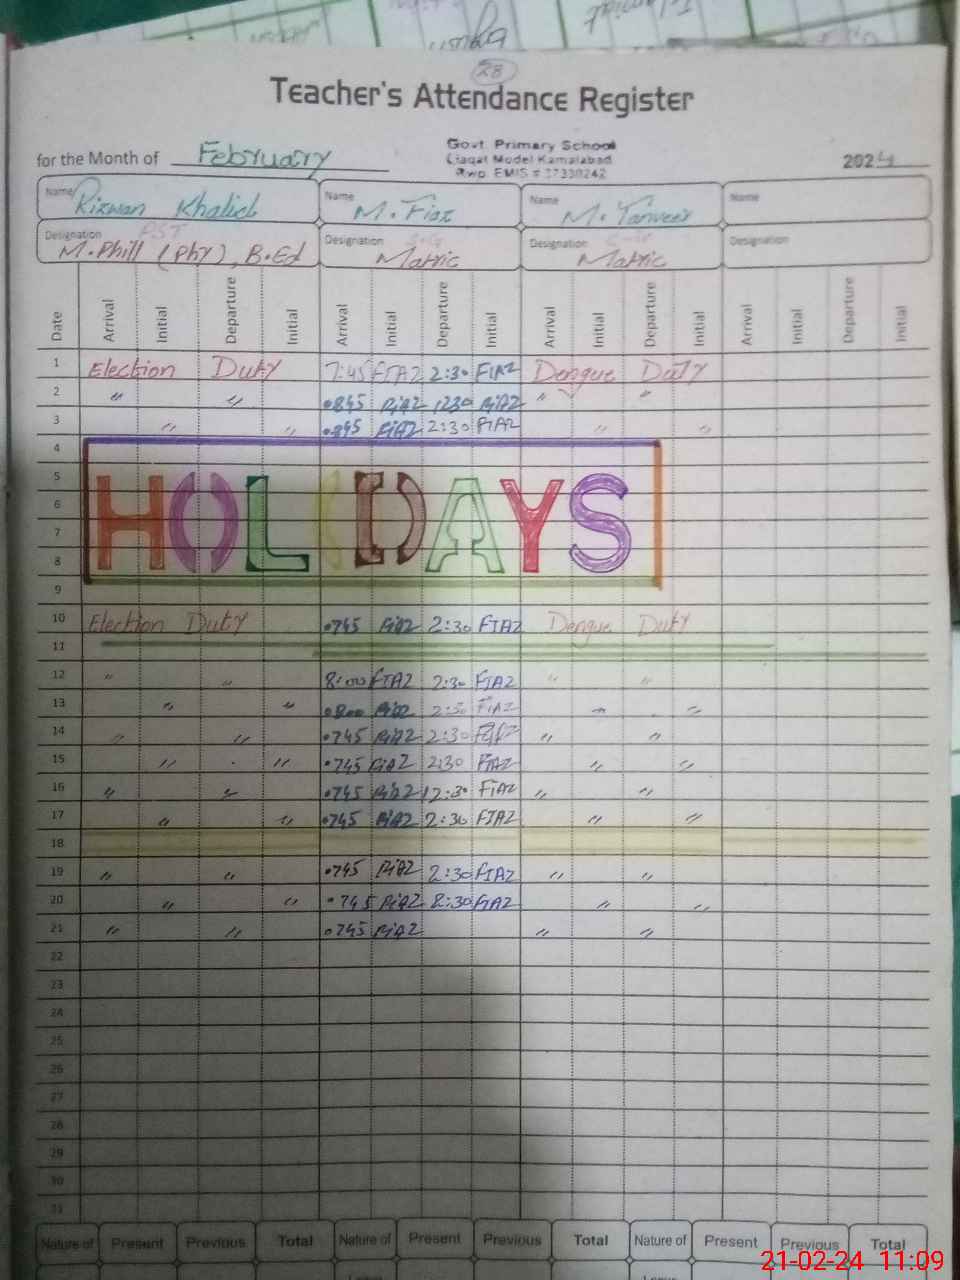 28
Teacher's Attendance Register
for the Month of February
Govt Primary School
Liaqat Model Kamalabad
Rwp EMIS # 37330242
2024
Name Rizwan Khalid Name M. Fiaz Name M. Tanveer Name
Designation PST Designation Designation Designation
M.Phill (Phy), B.Ed Matric Matric
Date Arrival Initial Departure Initial Arrival Initial Departure Initial Arrival Initial Departure Initial Arrival Initial Departure Initial
1 Election Duty 7:45 FIAZ 2:30 FIAZ Dengue Duty
2 " " 0845 FiAZ 1230 FiAZ " "
3 " " 0845 FiAZ 2:30 FIAZ " "
4
5
HOLIDAYS
6
7
8
9
10 Election Duty 0745 FiAZ 2:30 FIAZ Dengue Duty
11
12 " " 8:00 FIAZ 2:30 FIAZ " "
13 " " 0800 FiAZ 2:30 FiAZ " "
14 " " 0745 FiAZ 2:30 " "
15 " " 0745 FiAZ 2:30 FiAZ " "
16 " " 0745 FiAZ 12:30 FiAZ " "
17 " " 0745 FiAZ 2:30 FIAZ " "
18
19 " " 0745 FiAZ 2:30 FIAZ " "
20 " " 0745 FiAZ 2:30 FiAZ " "
21 " " 0745 FiAZ " "
22
23
24
25
26
27
28
29
30
31
Nature of Present Previous Total Nature of Present Previous Total Nature of Present Previous Total
Leave Leave
21-02-24 11:09